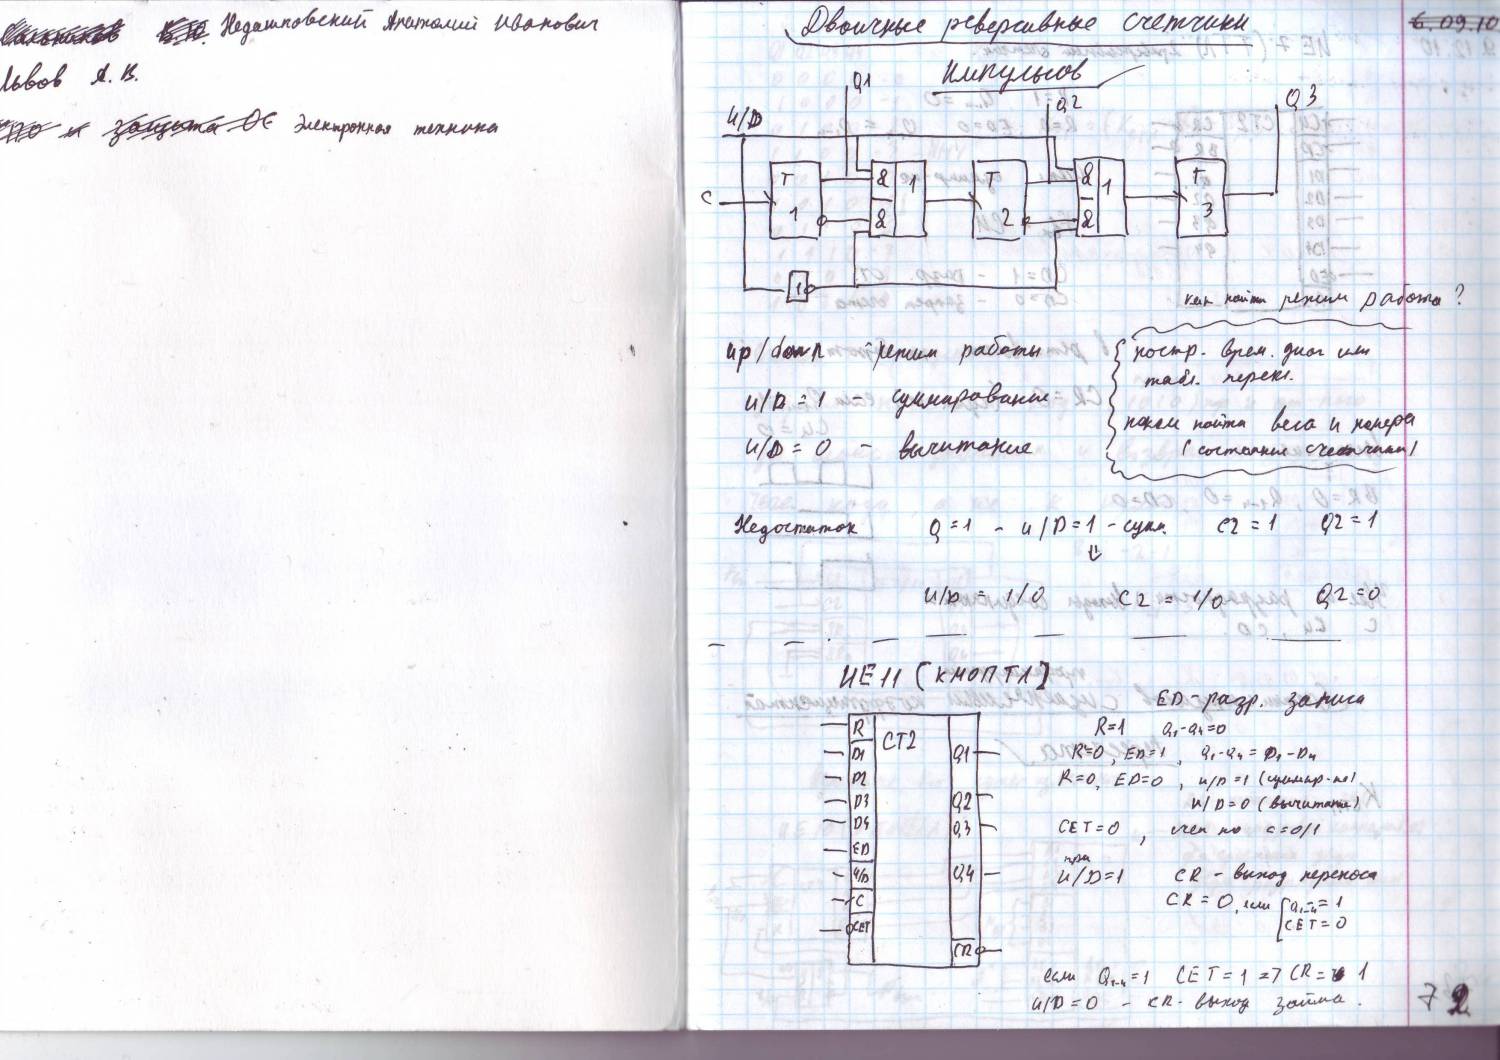 Недашковский Анатолий Иванович
Львов А. В.
Электронная техника
Двоичные реверсивные счетчики
импульсов
6.09.10
Q1
Q2
Q3
U/D
C
T
1
&
&
1
T
2
&
&
1
T
3
1
как найти режим работы?
up/down - режим работы
U/D = 1 - суммирование
U/D = 0 - вычитание
постр. врем. диаг или
табл. перекл.
потом найти веса и номера
(состояние счетчика)
Недостаток Q=1 - U/D=1 - сумм. C2=1 Q2=1
⇓
U/D = 1/0 C2 = 1/0 Q2=0
ИЕ11 (КМОПТЛ)
ED - разр. записи
R=1 Q1-Q4=0
R=0, ED=1, Q1-Q4 = D1-D4
R=0, ED=0, U/D=1 (суммир-ие)
U/D=0 (вычитание)
CET=0, счет по C=0/1
при
U/D=1 CR - выход переноса
CR=0, если Q1-4=1
CET=0
если Q1-4=1 CET=1 => CR=1
U/D=0 - CR - выход займа.
R
D1
D2
D3
D4
ED
U/D
C
CET
CT2
Q1
Q2
Q3
Q4
CR
72